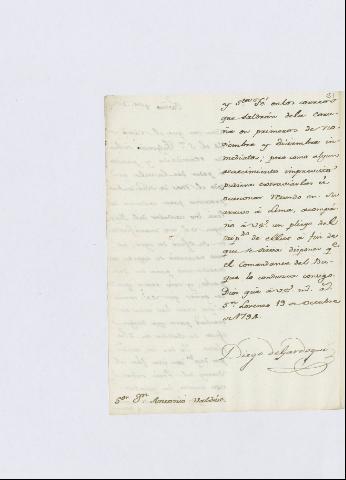 y Sta Fé en los correos
que saldrán de la Coru-
ña en primeros de no-
viembre y diciembre in-
mediatos; pero como algun
acaecimiento imprevisto
pudiera extraviarlos ú
ocasionar retardo en su
arrivo à Lima, acompa-
ño à V.E. un pliego del
de ellos à fin de
que se sirva disponer qe
el Comandante del Bu-
que lo conduzca consigo.
Dios gue à V.E. ms. as.
Sn Lorenzo 19 de Octubre
de 1794.
Diego de Gardoqui
Sor Dn Antonio Valdés.